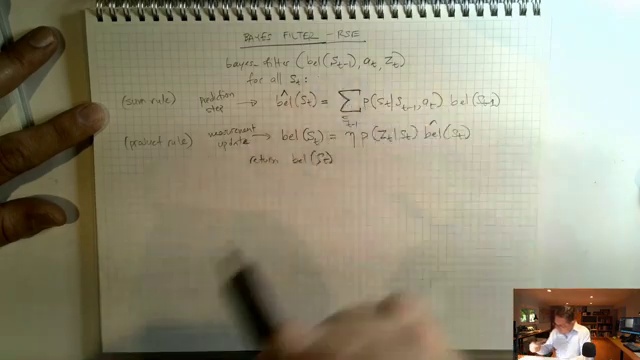 BAYES FILTER - RSE
bayes_filter (bel(S_{t-1}), a_t, Z_t)
for all S_t:
(sum rule) prediction step → \hat{bel}(S_t) = ∑_{S_{t-1}} p(S_t|S_{t-1}, a_t) bel(S_{t-1})
(product rule) measurement update → bel(S_t) = η p(Z_t|S_t) \hat{bel}(S_t)
return bel(S_t)